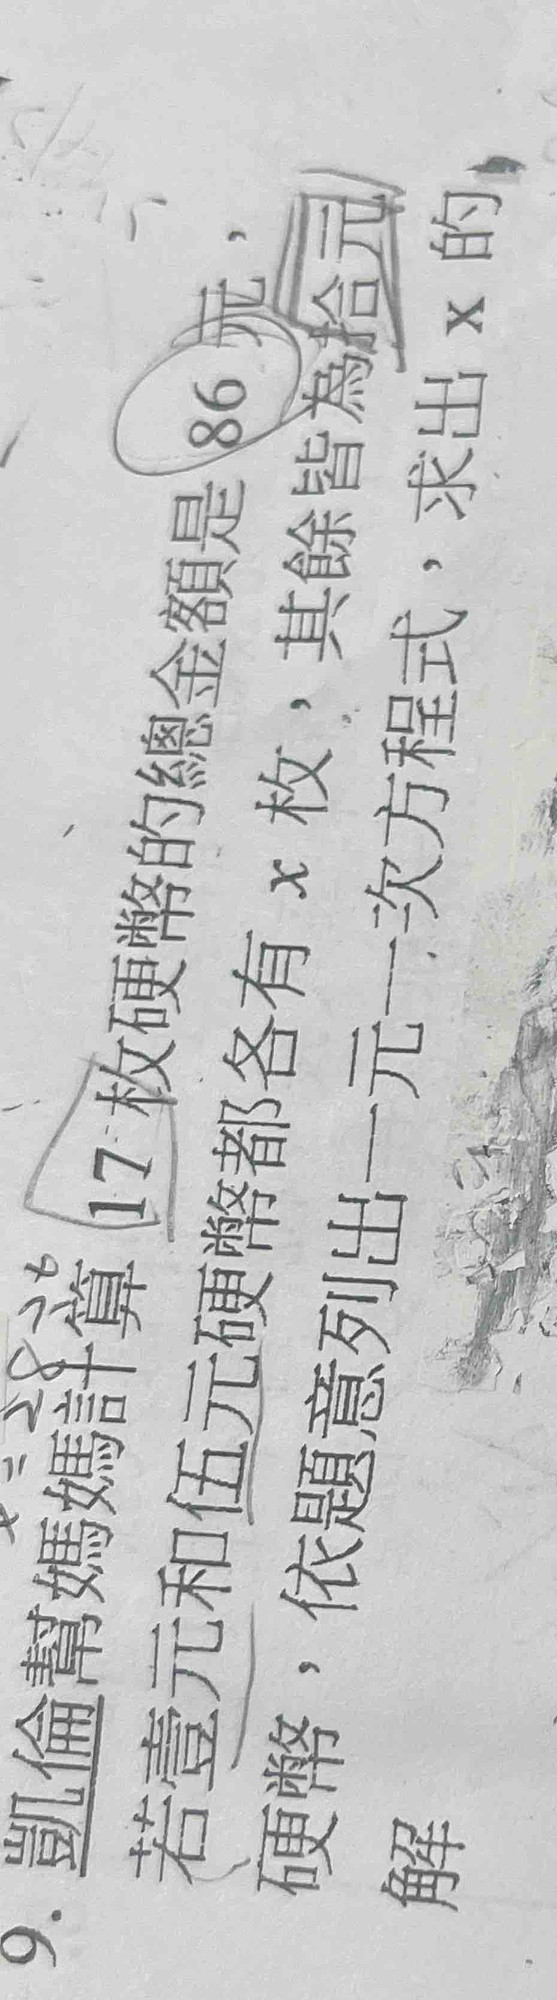 x=28
9. 凱倫幫媽媽計算17枚硬幣的總金額是86元，
若壹元和伍元硬幣都各有x枚，其餘皆為拾元
硬幣，依題意列出一元一次方程式，求出x的
解